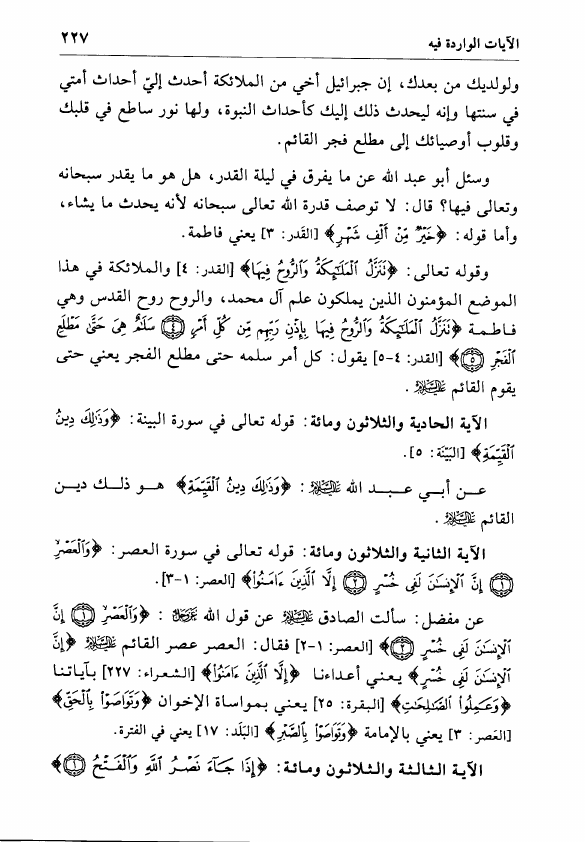 الآيات الواردة فيه ٢٢٧
ولولديك من بعدك، إن جبرائيل أخي من الملائكة أحدث إليّ أحداث أمتي
في سنتها وإنه ليحدث ذلك إليك كأحداث النبوة، ولها نور ساطع في قلبك
وقلوب أوصيائك إلى مطلع فجر القائم.
وسئل أبو عبد الله عن ما يفرق في ليلة القدر، هل هو ما يقدر سبحانه
وتعالى فيها؟ قال: لا توصف قدرة الله تعالى سبحانه لأنه يحدث ما يشاء،
وأما قوله: ﴿خَيْرٌ مِّنْ أَلْفِ شَهْرٍ﴾ [القَدر: ٣] يعني فاطمة.
وقوله تعالى: ﴿نَنَزَّلُ ٱلْمَلَٰٓئِكَةُ وَٱلرُّوحُ فِيهَا﴾ [القدر: ٤] والملائكة في هذا
الموضع المؤمنون الذين يملكون علم آل محمد، والروح روح القدس وهي
فاطمة ﴿نَنَزَّلُ ٱلْمَلَٰٓئِكَةُ وَٱلرُّوحُ فِيهَا بِإِذْنِ رَبِّهِم مِّن كُلِّ أَمْرٍ ۝٤ سَلَٰمٌ هِىَ حَتَّىٰ مَطْلَعِ
ٱلْفَجْرِ ۝٥﴾ [القدر: ٤-٥] يقول: كل أمر سلمه حتى مطلع الفجر يعني حتى
يقوم القائم عليه السلام.
الآية الحادية والثلاثون ومائة: قوله تعالى في سورة البينة: ﴿وَذَٰلِكَ دِينُ
ٱلْقَيِّمَةِ﴾ [البَيّنَة: ٥].
عن أبي عبد الله عليه السلام: ﴿وَذَٰلِكَ دِينُ ٱلْقَيِّمَةِ﴾ هو ذلك دين
القائم عليه السلام.
الآية الثانية والثلاثون ومائة: قوله تعالى في سورة العصر: ﴿وَٱلْعَصْرِ
۝١ إِنَّ ٱلْإِنسَٰنَ لَفِى خُسْرٍ ۝٢ إِلَّا ٱلَّذِينَ ءَامَنُوا۟﴾ [العصر: ١-٣].
عن مفضل: سألت الصادق عليه السلام عن قول الله عز وجل: ﴿وَٱلْعَصْرِ ۝١ إِنَّ
ٱلْإِنسَٰنَ لَفِى خُسْرٍ ۝٢﴾ [العصر: ١-٢] فقال: العصر عصر القائم عليه السلام ﴿إِنَّ
ٱلْإِنسَٰنَ لَفِى خُسْرٍ﴾ يعني أعداءنا ﴿إِلَّا ٱلَّذِينَ ءَامَنُوا۟﴾ [الشعراء: ٢٢٧] بآياتنا
﴿وَعَمِلُوا۟ ٱلصَّٰلِحَٰتِ﴾ [البقرة: ٢٥] يعني بمواساة الإخوان ﴿وَتَوَاصَوْا۟ بِٱلْحَقِّ﴾
[العَصر: ٣] يعني بالإمامة ﴿وَتَوَاصَوْا۟ بِٱلصَّبْرِ﴾ [البَلَد: ١٧] يعني في الفترة.
الآية الثالثة والثلاثون ومائة: ﴿إِذَا جَآءَ نَصْرُ ٱللَّهِ وَٱلْفَتْحُ ۝١﴾